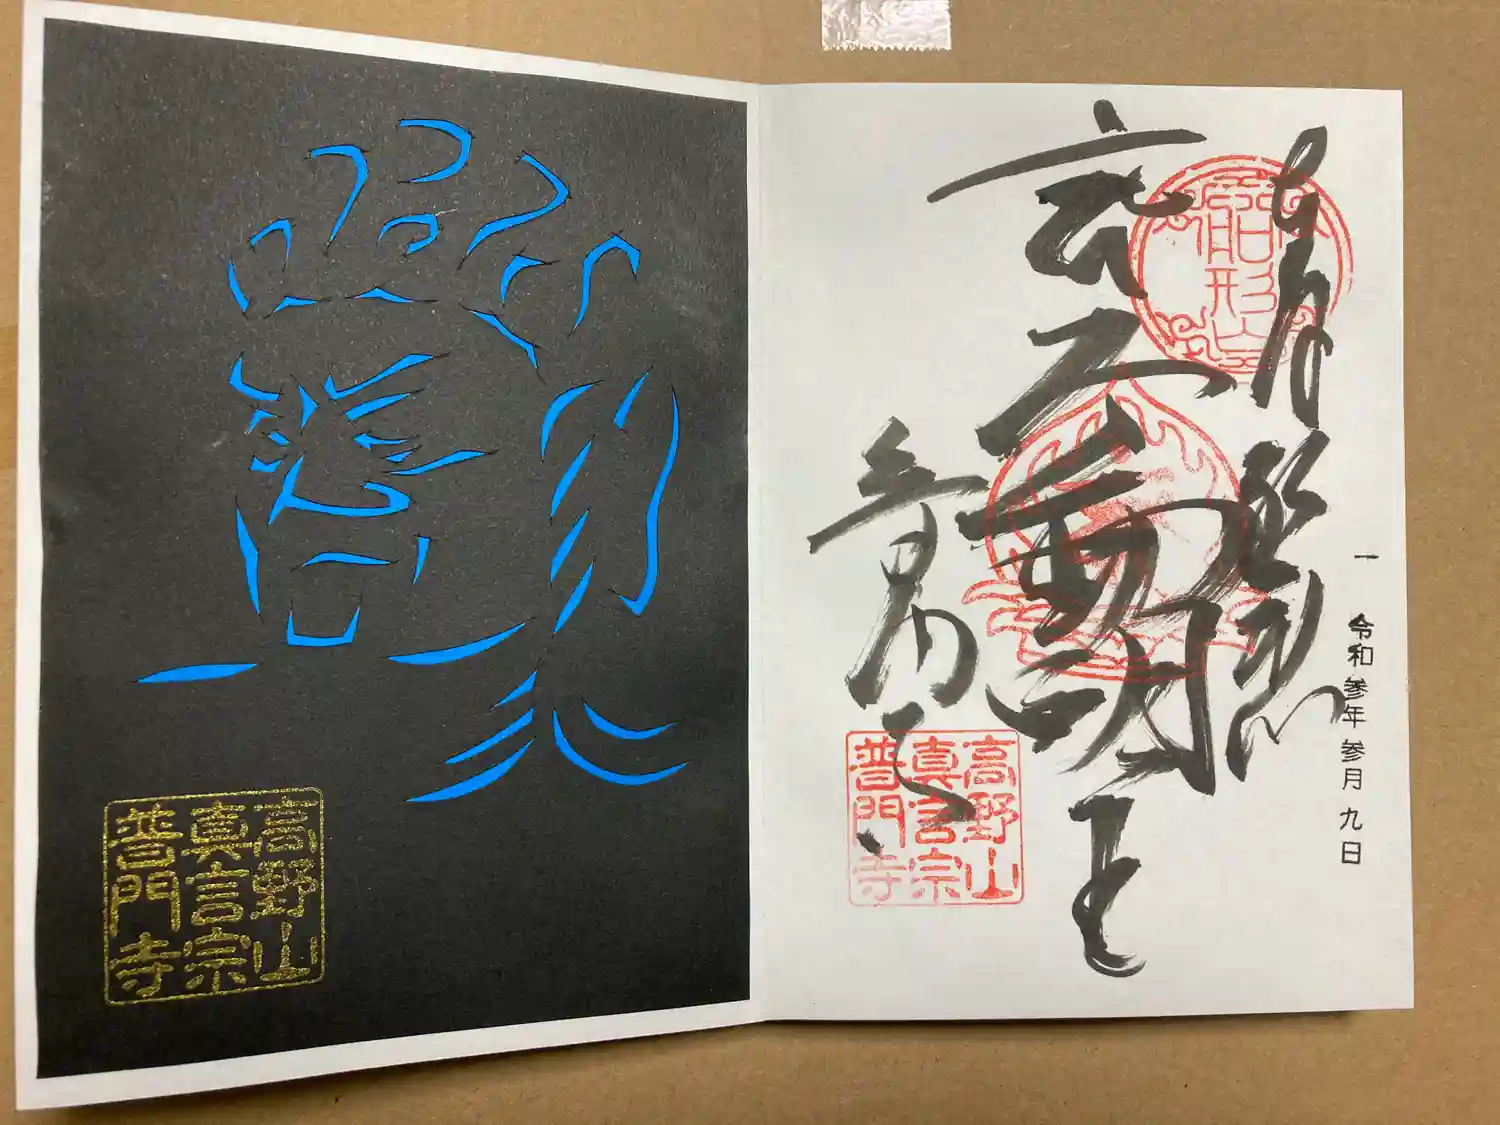 船形山
一 令和参年参月九日
不動明王
普門寺
高野山
真言宗
普門寺
高野山
真言宗
普門寺